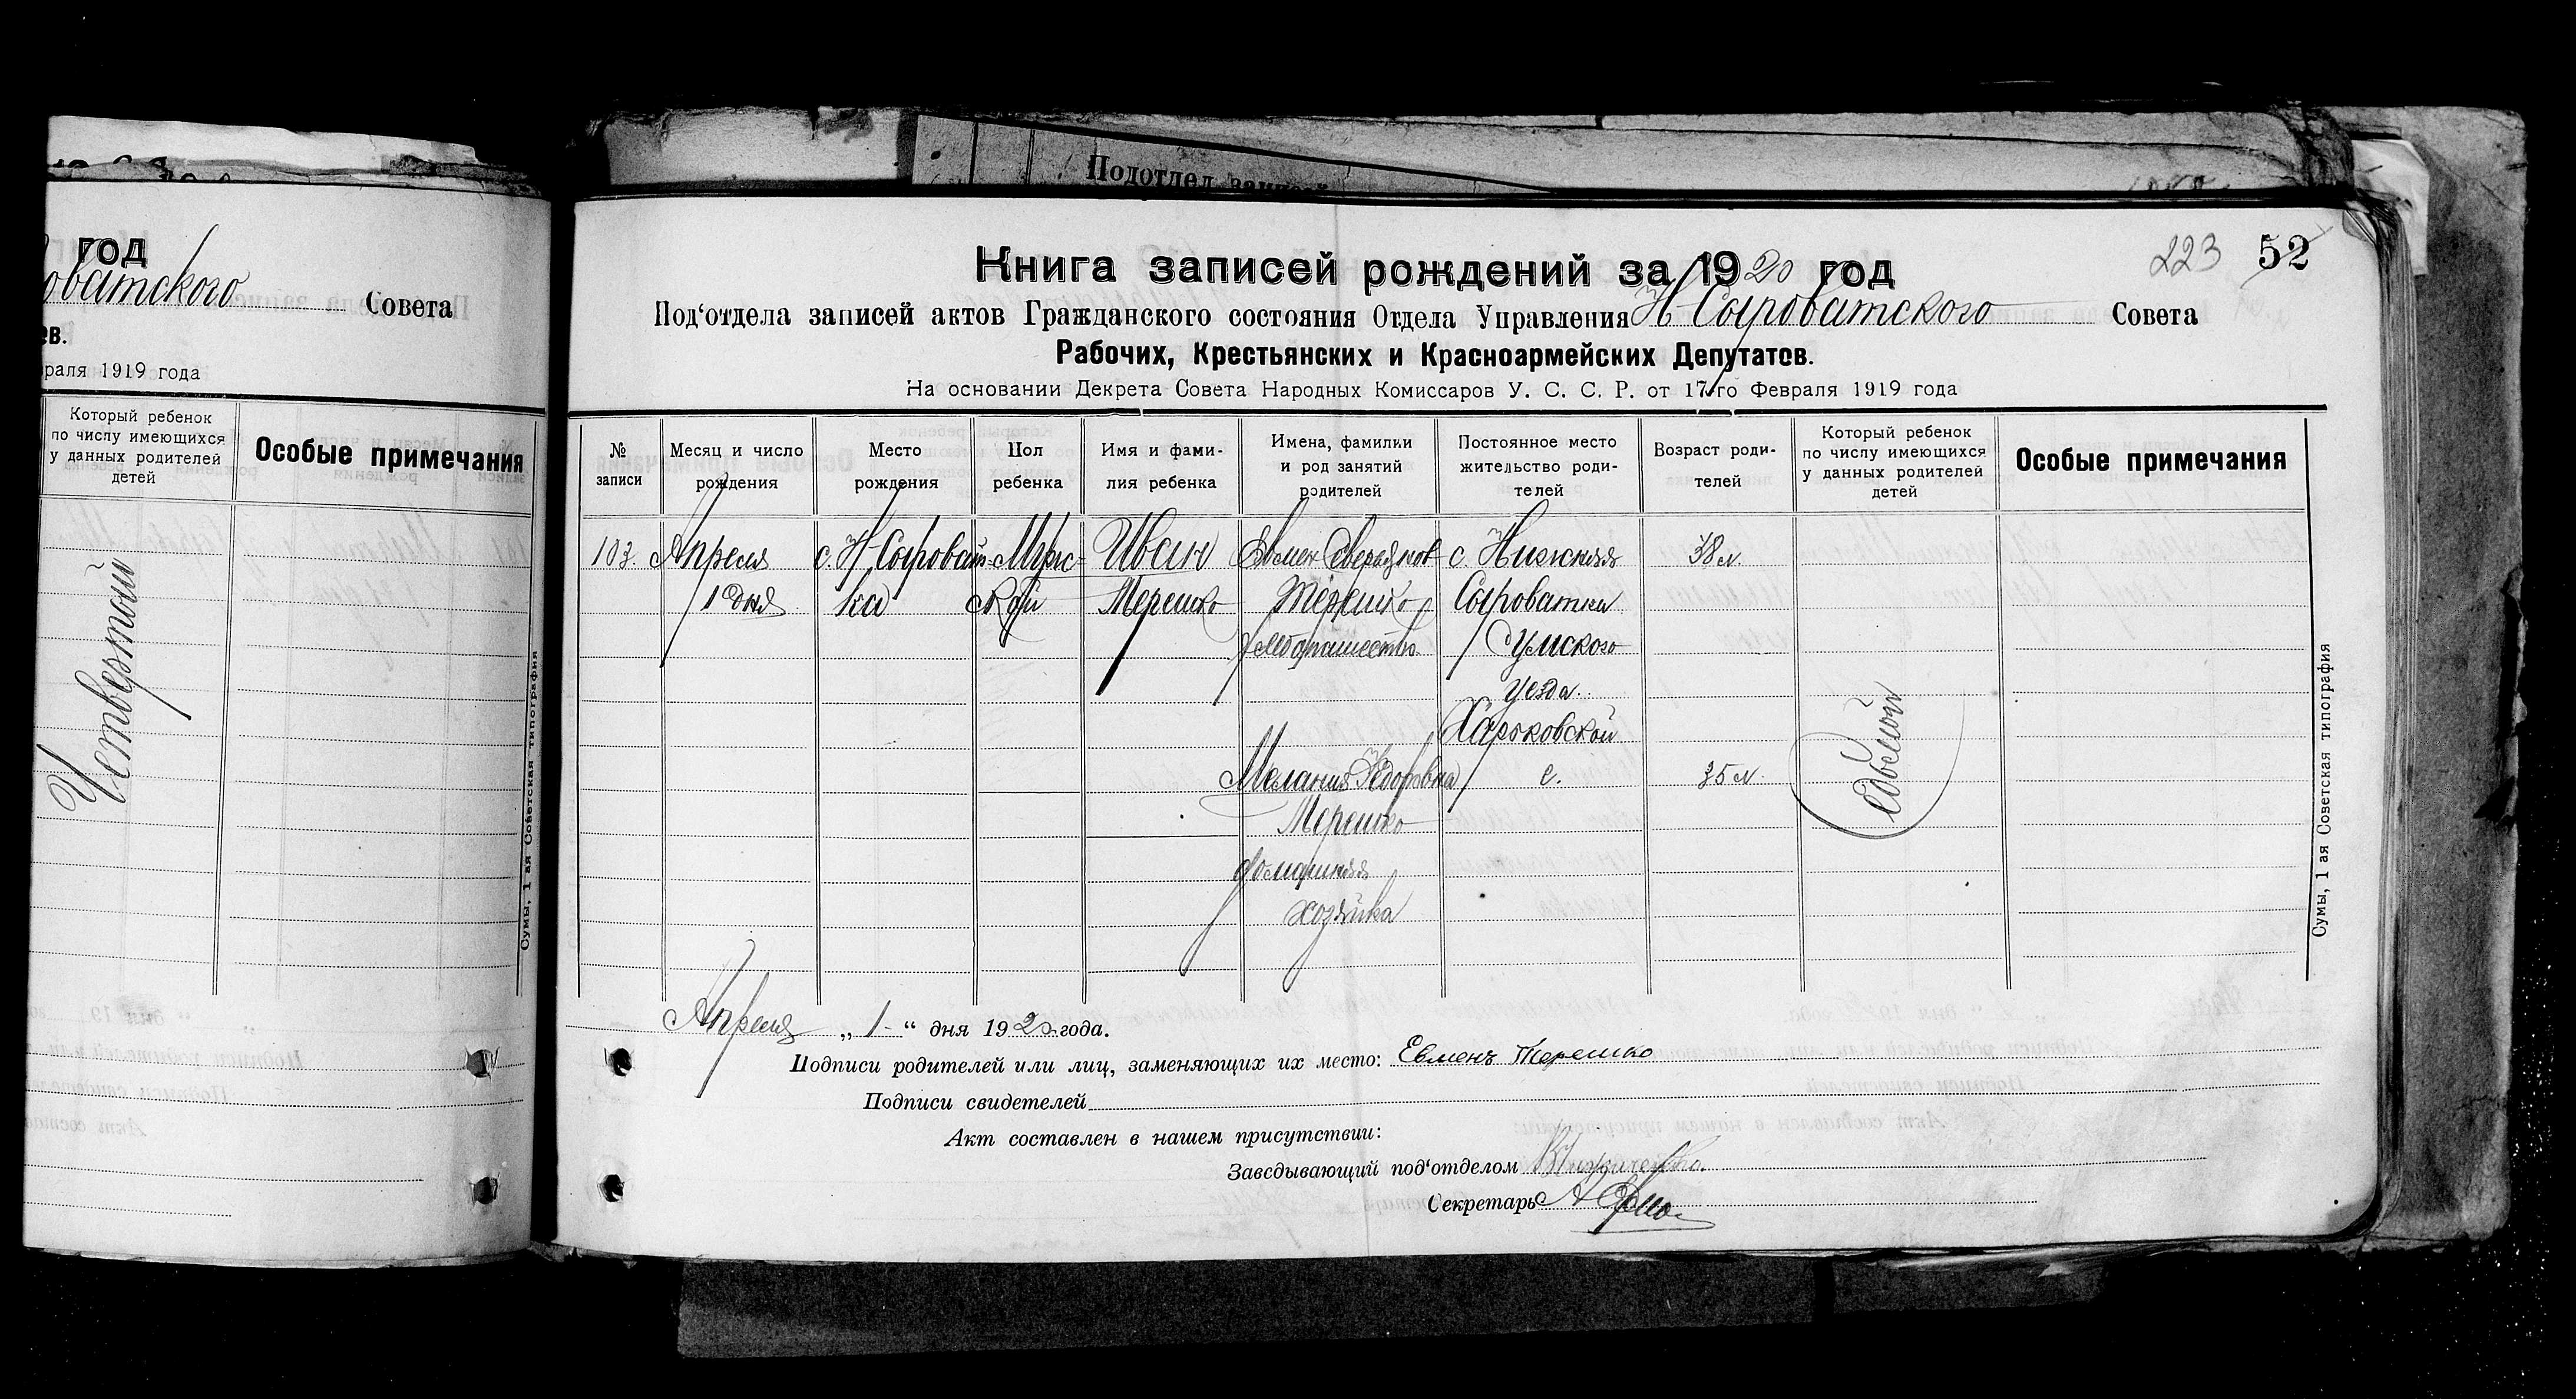 Подотдел записей
год
оватского Совета
ев.
раля 1919 года
Который ребенок
по числу имеющихся
у данных родителей
детей
Особые примечания
Четвертой
Сумы, 1 ая Советская типография
223 52
Книга записей рождений за 1920 год
Под‘отдела записей актов Гражданского состояния Отдела Управления Н Сыроватского Совета
Рабочих, Крестьянских и Красноармейских Депутатов.
На основании Декрета Совета Народных Комиссаров У. С. С. Р. от 17-го Февраля 1919 года
№
записи
Месяц и число
рождения
Место
рождения
Пол
ребенка
Имя и фами-
лия ребенка
Имена, фамилии
и род занятий
родителей
Постоянное место
жительство роди-
телей
Возраст роди-
телей
Который ребенок
по числу имеющихся
у данных родителей
детей
Особые примечания
103.
Апреля
1 дня
с. Н-Сыроват-
ка
Мужс-
ской
Иван
Терешко
Евмен
Терешко
хлебопашество
с. Нижняя
Сыроватка
Сумского
Уезда.
Харьковской
38 л.
Мелания Федоровна
Терешко
домашняя
хозяйка
35 л.
Седьмой
Апреля „ 1 “ дня 1920 года.
Подписи родителей или лиц, заменяющих их место: Евменъ Терешко
Подписи свидетелей
Акт составлен в нашем присутствии:
Заведывающий под‘отделом
Секретарь
Сумы, 1 ая Советская типография